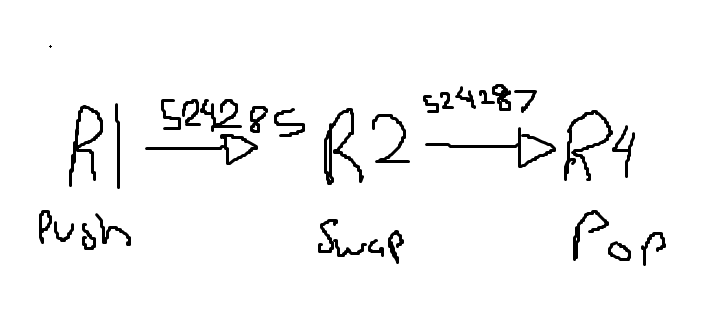 R1 524285 R2 524287 R4
Push Swap Pop